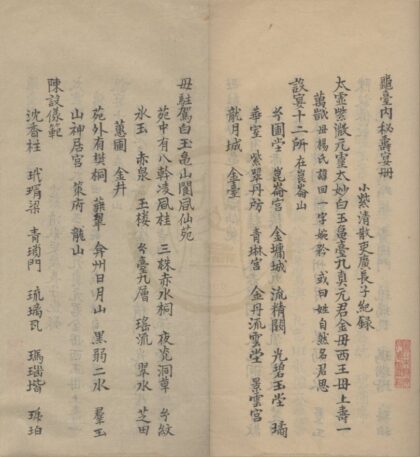 龜臺內秘壽宴册
小點清散吏廣長子紀錄
太靈紫微元靈太妙白玉龜臺九真元君金母西王母上壽一
萬歲母楊氏諱回一字婉妗或曰姓自然名君思
設宴十二所在崑崙山
兮圃堂 崑崙宮 金墉城 流精闕 光碧玉堂 瓊
華室 紫翠丹房 青琳宮 金丹流雲堂 景雲宮
龍月城 金臺
母駐駕白玉龜山閬風仙苑
苑中有八幹凌風桂 三株赤水桐 夜光洞草 兮紋
氷玉 赤泉 玉樓 兮臺九層 瑶流 翠水 芝田
蕙圃 金井
苑外有樊桐 弇州日月山 黑弱二水 羣玉
山神居宮 策府 龍山
陳設儀範
沈香柱 玳瑁梁 青瑣門 琉璃瓦 瑪瑙堦 珠珀